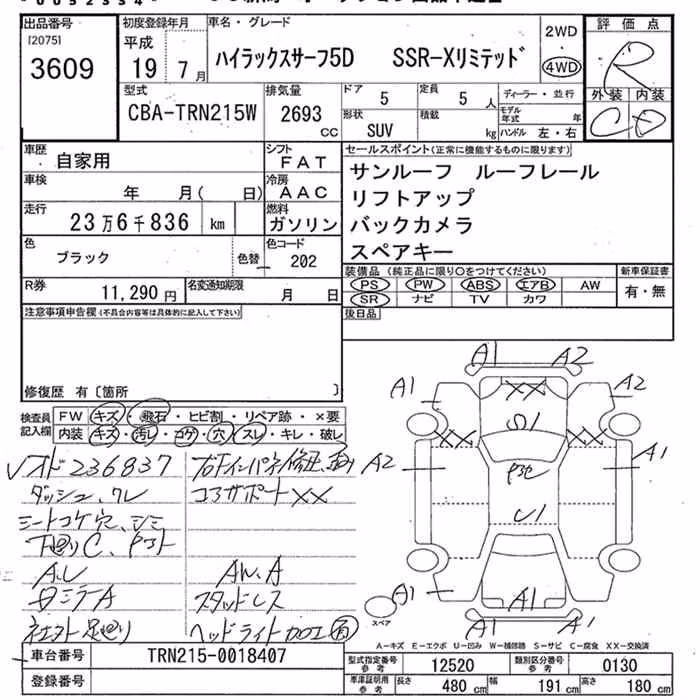 出品番号
[2075]
3609
初度登録年月
平成
19年7月
車名・グレード
ハイラックスサーフ5D SSR-Xリミテッド
2WD
・
4WD
評価点
R
外装 内装
C D
型式
CBA-TRN215W
排気量
2693 cc
ドア 5
定員 5人
形状 SUV
積載 kg
ディーラー・並行
モデル年式 年
ハンドル 左・右
車歴 自家用
シフト FAT
車検 年 月( 日)
冷房 AAC
走行 23万6千836 km
燃料 ガソリン
色 ブラック
色替
色コード 202
R券 11,290円
名変通知期限 月 日
セールスポイント(正常に機能するものに限ります)
サンルーフ ルーフレール
リフトアップ
バックカメラ
スペアキー
装備品(純正品に限り○をつけてください)
新車保証書
PS PW ABS エアB AW
SR ナビ TV カワ
有・無
後日品
注意事項申告欄(不具合内容等は具体的に記入して下さい)
修復歴 有〔箇所 〕
検査員記入欄
FW キズ・飛石・ヒビ割・リペア跡・×要
内装 キズ・汚レ・コゲ・穴・スレ・キレ・破レ
236837
ダッシュ、ワレ
シートコゲ穴、シミ
下廻りC、
コアサポートXX
AW、A
スタッドレス
ヘッドライト加工有
A1 A2
A1 A2
XX
XX XX
A2 A1
U1
A1 A1 A1
A1
スペア
A-キズ E-エクボ U-凹み W-補修跡 S-サビ C-腐食 XX-交換済
車台番号 TRN215-0018407
登録番号
型式指定番号 参考 12520
類別区分番号 参考 0130
車庫証明用 参考 長さ 480cm 幅 191cm 高さ 180cm